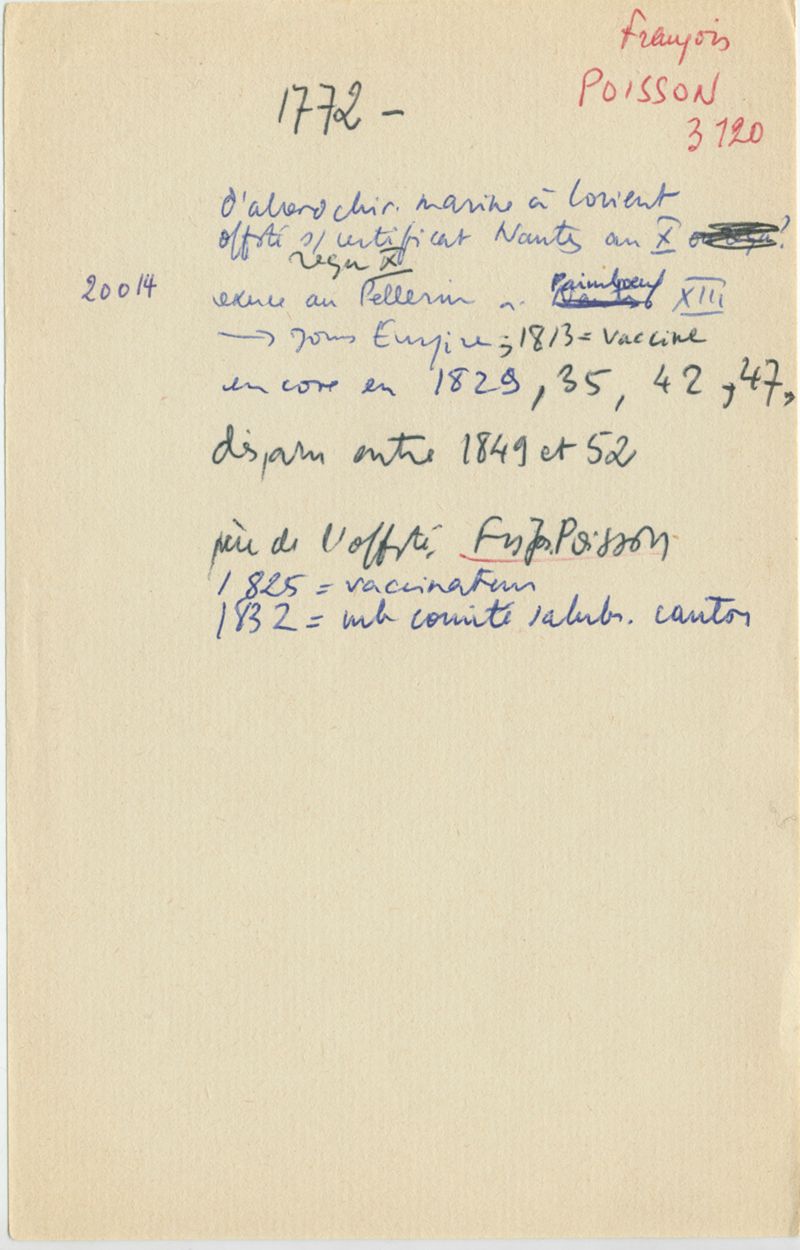 François
POISSON
3120
1772 -
d'abord chir. marine à Lorient
offsté s/ certificat Nantes an X ?
reçu X
20014
exerce au Pellerin Paimboeuf XIII
→ sous Empire ; 1813 = vaccine
encore en 1829, 35, 42, 47,
disparu entre 1849 et 52
père de l'offsté Fs Js. Poisson
1825 = vaccinateur
1832 = mb comité salub. canton